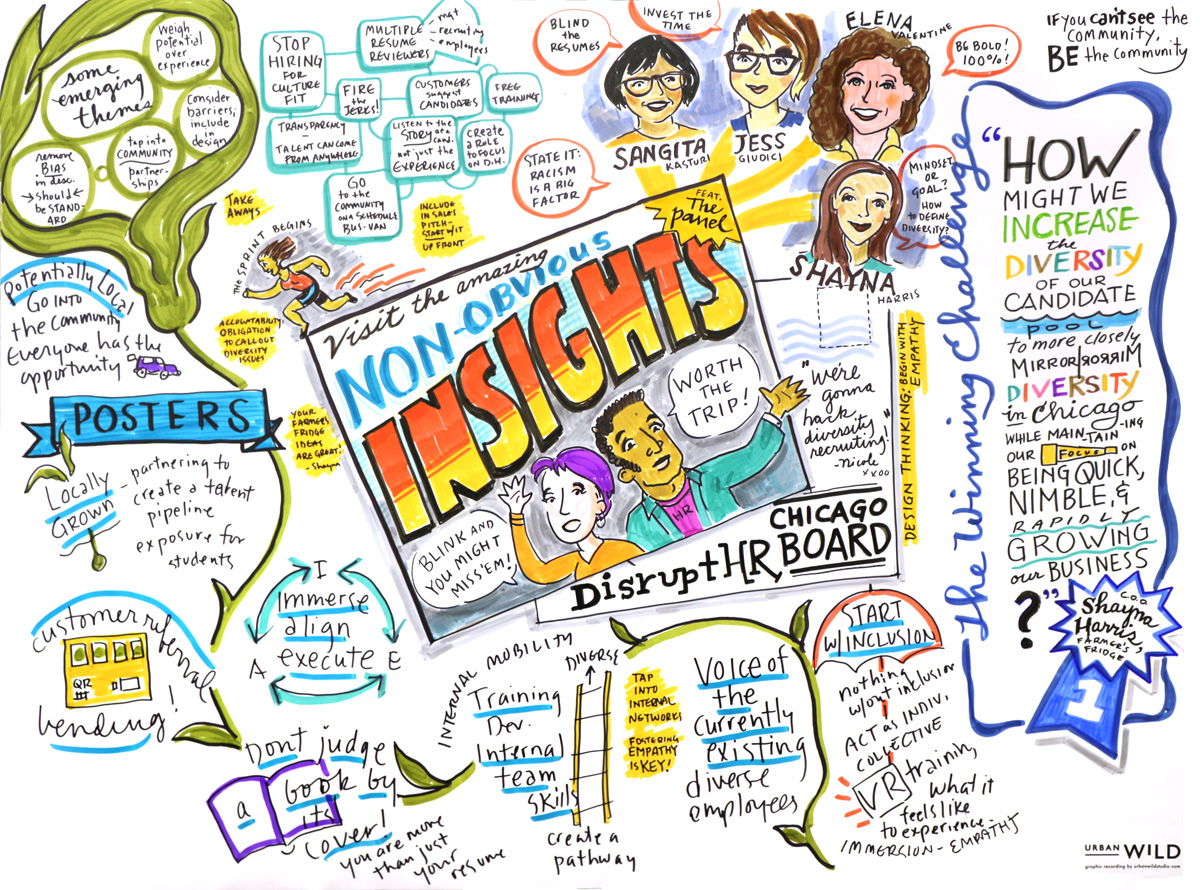 some
emerging
themes
weigh
potential
over
experience
Consider
barriers;
include
in
design
tap into
COMMUNITY
partner-
ships
remove
BIAS
in desc.
→ should ←
be STAND-
ARD
STOP
HIRING
FOR
CULTURE
FIT
MULTIPLE
RESUME
REVIEWERS
- mgt
- recruiting
- employers
FIRE
the
JERKS!
CUSTOMERS
suggest
CANDIDATES
FREE
TRAINING
TRANSPARENCY
-
TALENT CAN COME
FROM ANYWHERE
LISTEN TO the
STORY of a
cand.
not just the
EXPERIENCE
create
a ROLE
to FOCUS
ON D.H.
GO
TO the
COMMUNITY
ON A SCHEDULE
BUS-VAN
TAKE
AWAYS
INCLUDE
IN SALES
PITCH-
START W/IT
UP FRONT
THE SPRINT BEGINS
ACCOUNTABILITY,
OBLIGATION
TO CALL OUT
DIVERSITY
ISSUES
BLIND
the
RESUMES
INVEST THE
TIME
STATE IT:
RACISM
IS A BIG
FACTOR
BE BOLD!
100%!
MINDSET
OR
GOAL?
HOW
TO DEFINE
DIVERSITY?
SANGITA
KASTURI
JESS
GIUDICI
ELENA
VALENTINE
SHAYNA
HARRIS
IF you can't see the
"community,
BE the community
FEAT.
The
panel
Visit the amazing
NON-OBVIOUS
INSIGHTS
WORTH
THE
TRIP!
BLINK AND
YOU MIGHT
MISS'EM!
HR
CHICAGO
BOARD
DisruptHR,
"we're
gonna
hack
diversity
recruiting!"
-Nicole
xxoo
DESIGN THINKING: BEGIN WITH
EMPATHY
Potentially Local
GO INTO
the Community
Everyone has the
opportunity
POSTERS
YOUR
FARMERS
FRIDGE
IDEAS
ARE GREAT.
- Shayna
Locally
Grown
- partnering to
create a talent
pipeline
exposure for
students
customer referral
QR
vending!
I
Immerse
align
execute
A
E
Don't judge
a
book by
its
cover!
you are more
than just
your
resume
INTERNAL MOBILITY
Training
Dev.
Internal
team
skills
DIVERSE
create a
pathway
TAP
INTO
INTERNAL
NETWORKS
FOSTERING
EMPATHY
IS KEY!
VOICE of
the
currently
existing
diverse
employees
START
W/INCLUSION
nothing
w/out inclusion
ACT as INDIV,
COLLECTIVE
VR training,
what it
feels like
to experience -
IMMERSION - EMPATHY
The Winning Challenge
"HOW
MIGHT WE
INCREASE
the
DIVERSITY
OF OUR
CANDIDATE
POOL
to more closely
MIRROR
MIRROR
DIVERSITY
in Chicago
WHILE MAIN-TAIN-ING
OUR FOCUS ON
BEING QUICK,
NIMBLE, &
RAPIDLY
GROWING
our BUSINESS
?"
C.O.O.
Shayna
Harris,
FARMER'S
FRIDGE
1
URBAN WILD
graphic recording by urbanwildstudio.com